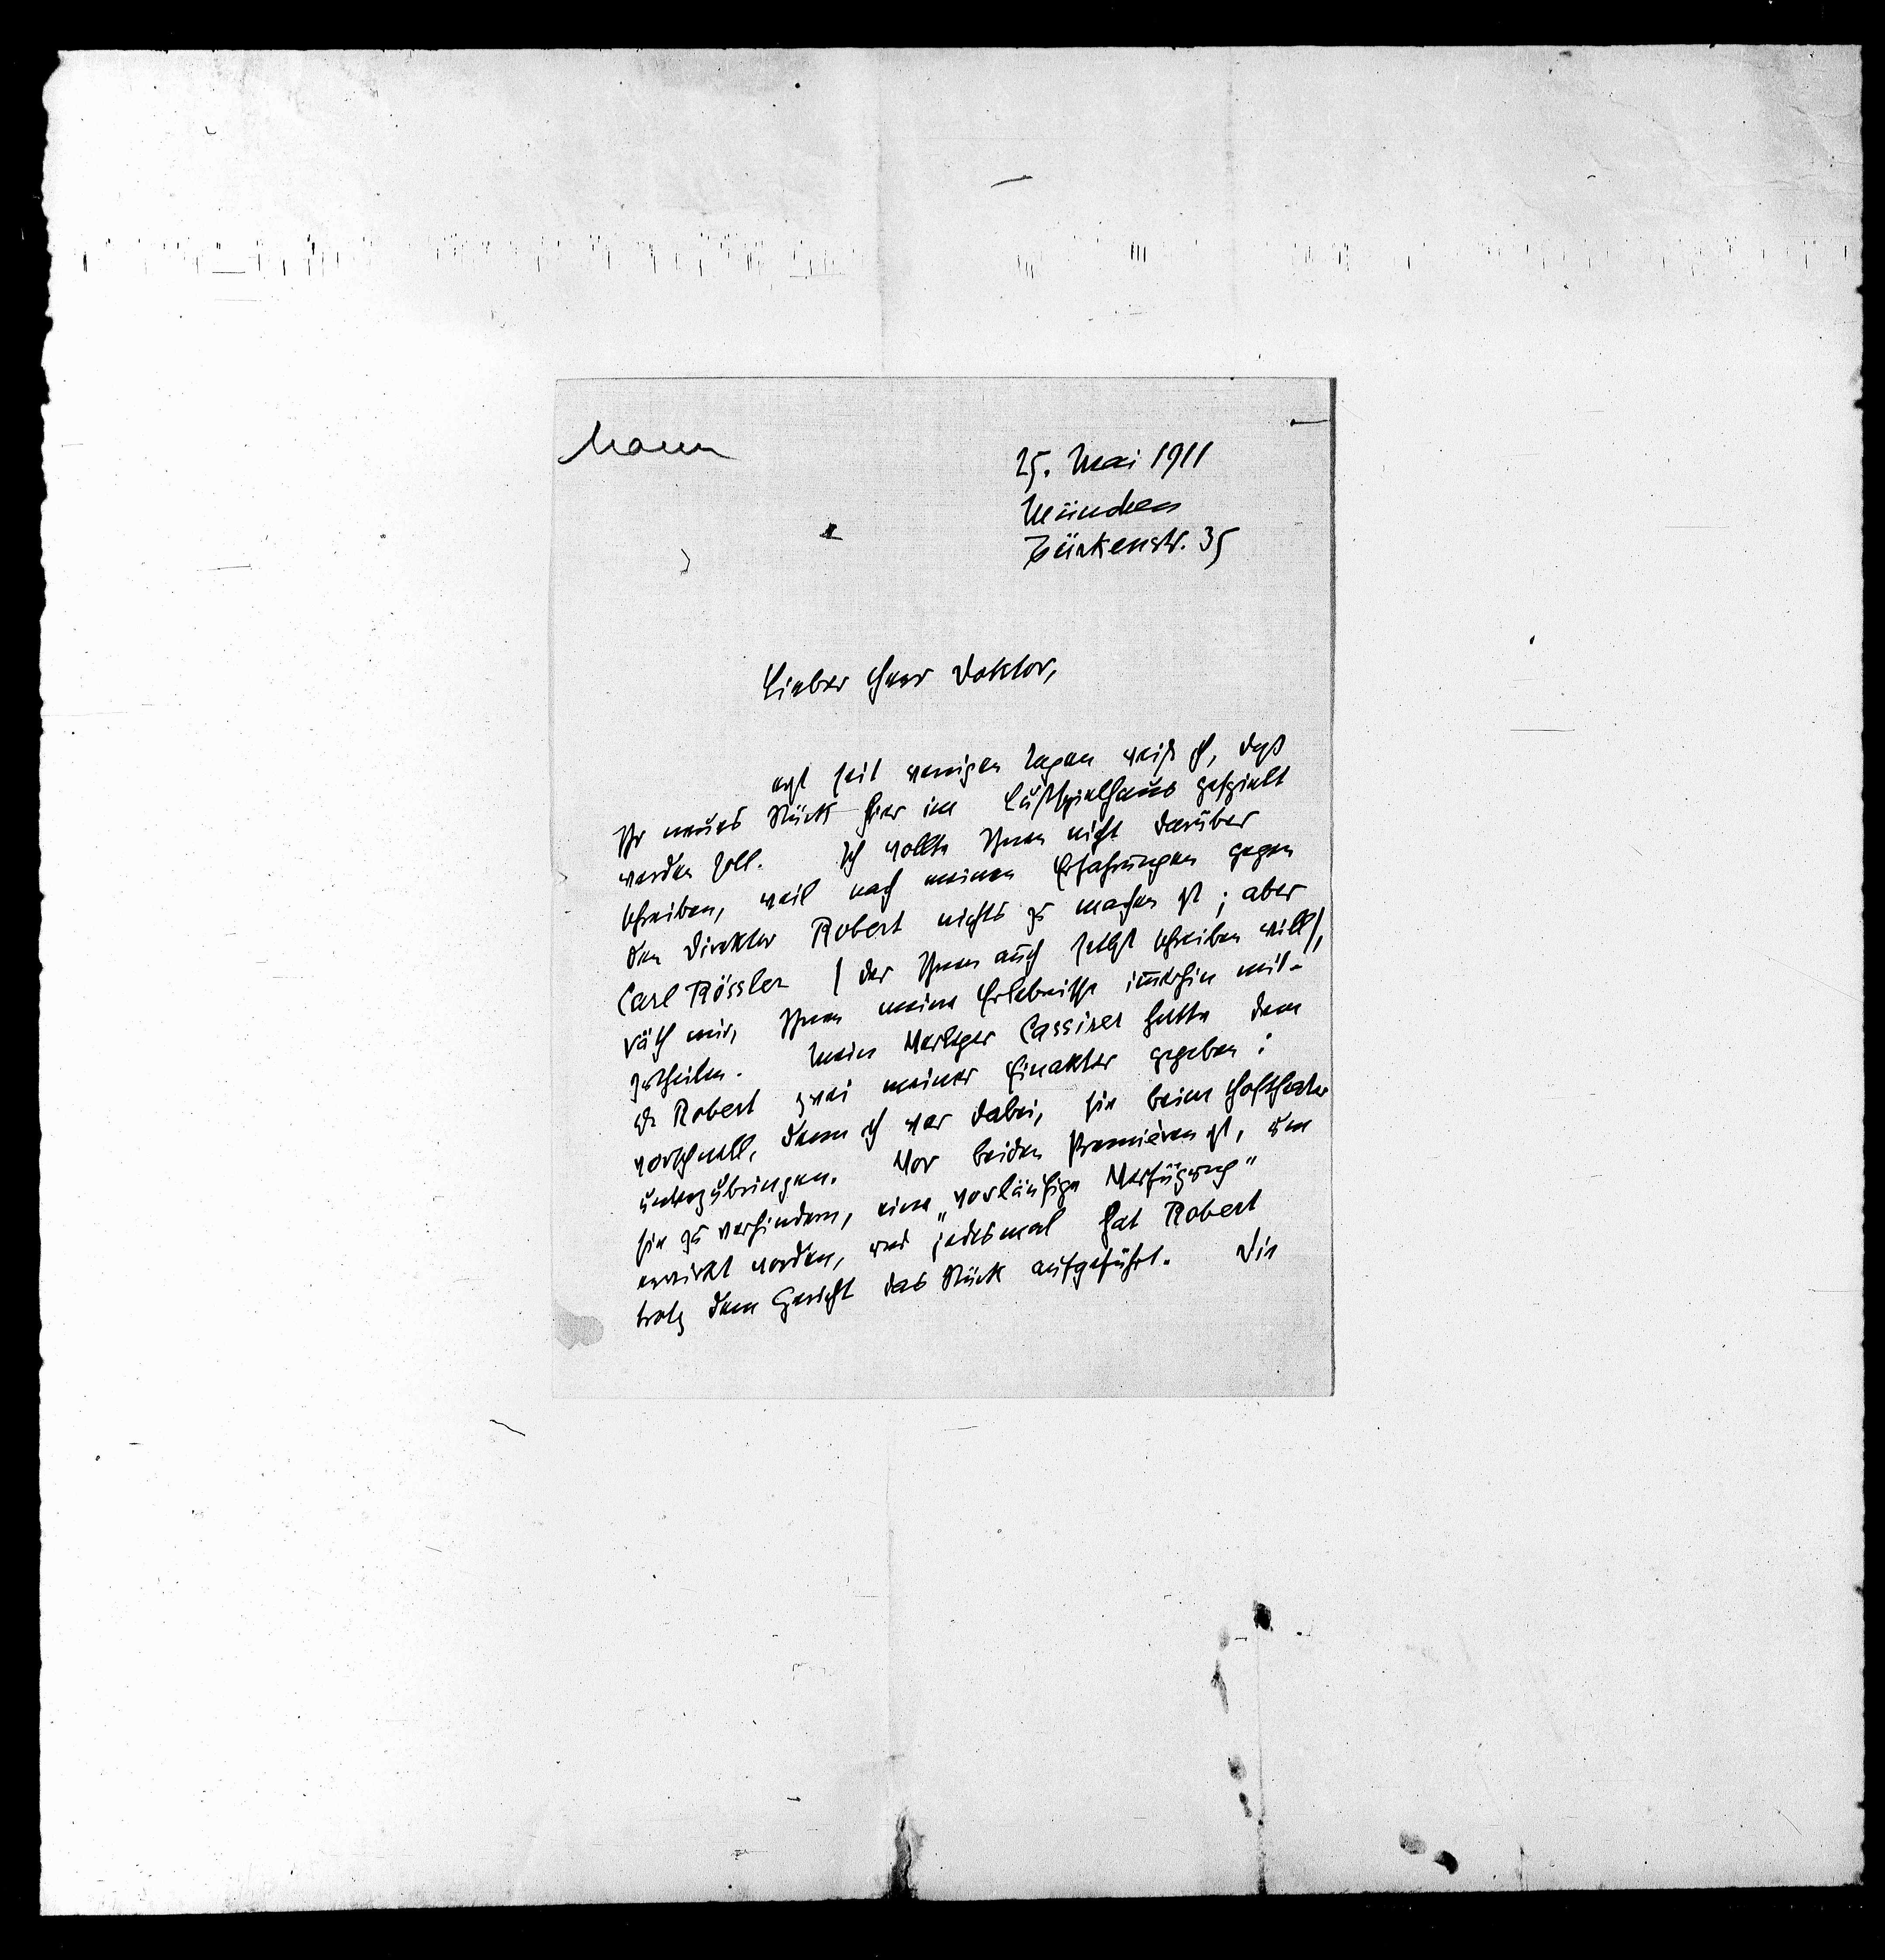 Mann
25. Mai 1911
München
Türkenstr. 35
Lieber Herr Doktor,
erst seit wenigen Tagen weiß ich, daß
Ihr neues Stück hier im Lustspielhaus gespielt
werden soll. Ich wollte Ihnen nicht darüber
schreiben, weil nach meinen Erfahrungen gegen
den Direktor Robert nichts zu machen ist; aber
Carl Rössler (der Ihnen auch selbst schreiben will),
räth mir, Ihnen meine Erlebnisse im̅erhin mit-
zutheilen. Mein Verleger Cassirer hatte dem
Dr Robert zwei meiner Einakter gegeben:
vorschnell, denn ich war dabei, sie beim Hoftheater
unterzubringen. Vor beiden Premièren ist, um
sie zu verhindern, eine „vorläufige Verfügung"
erwirkt worden, und jedesmal hat Robert
trotz dem Gericht das Stück aufgeführt. Die